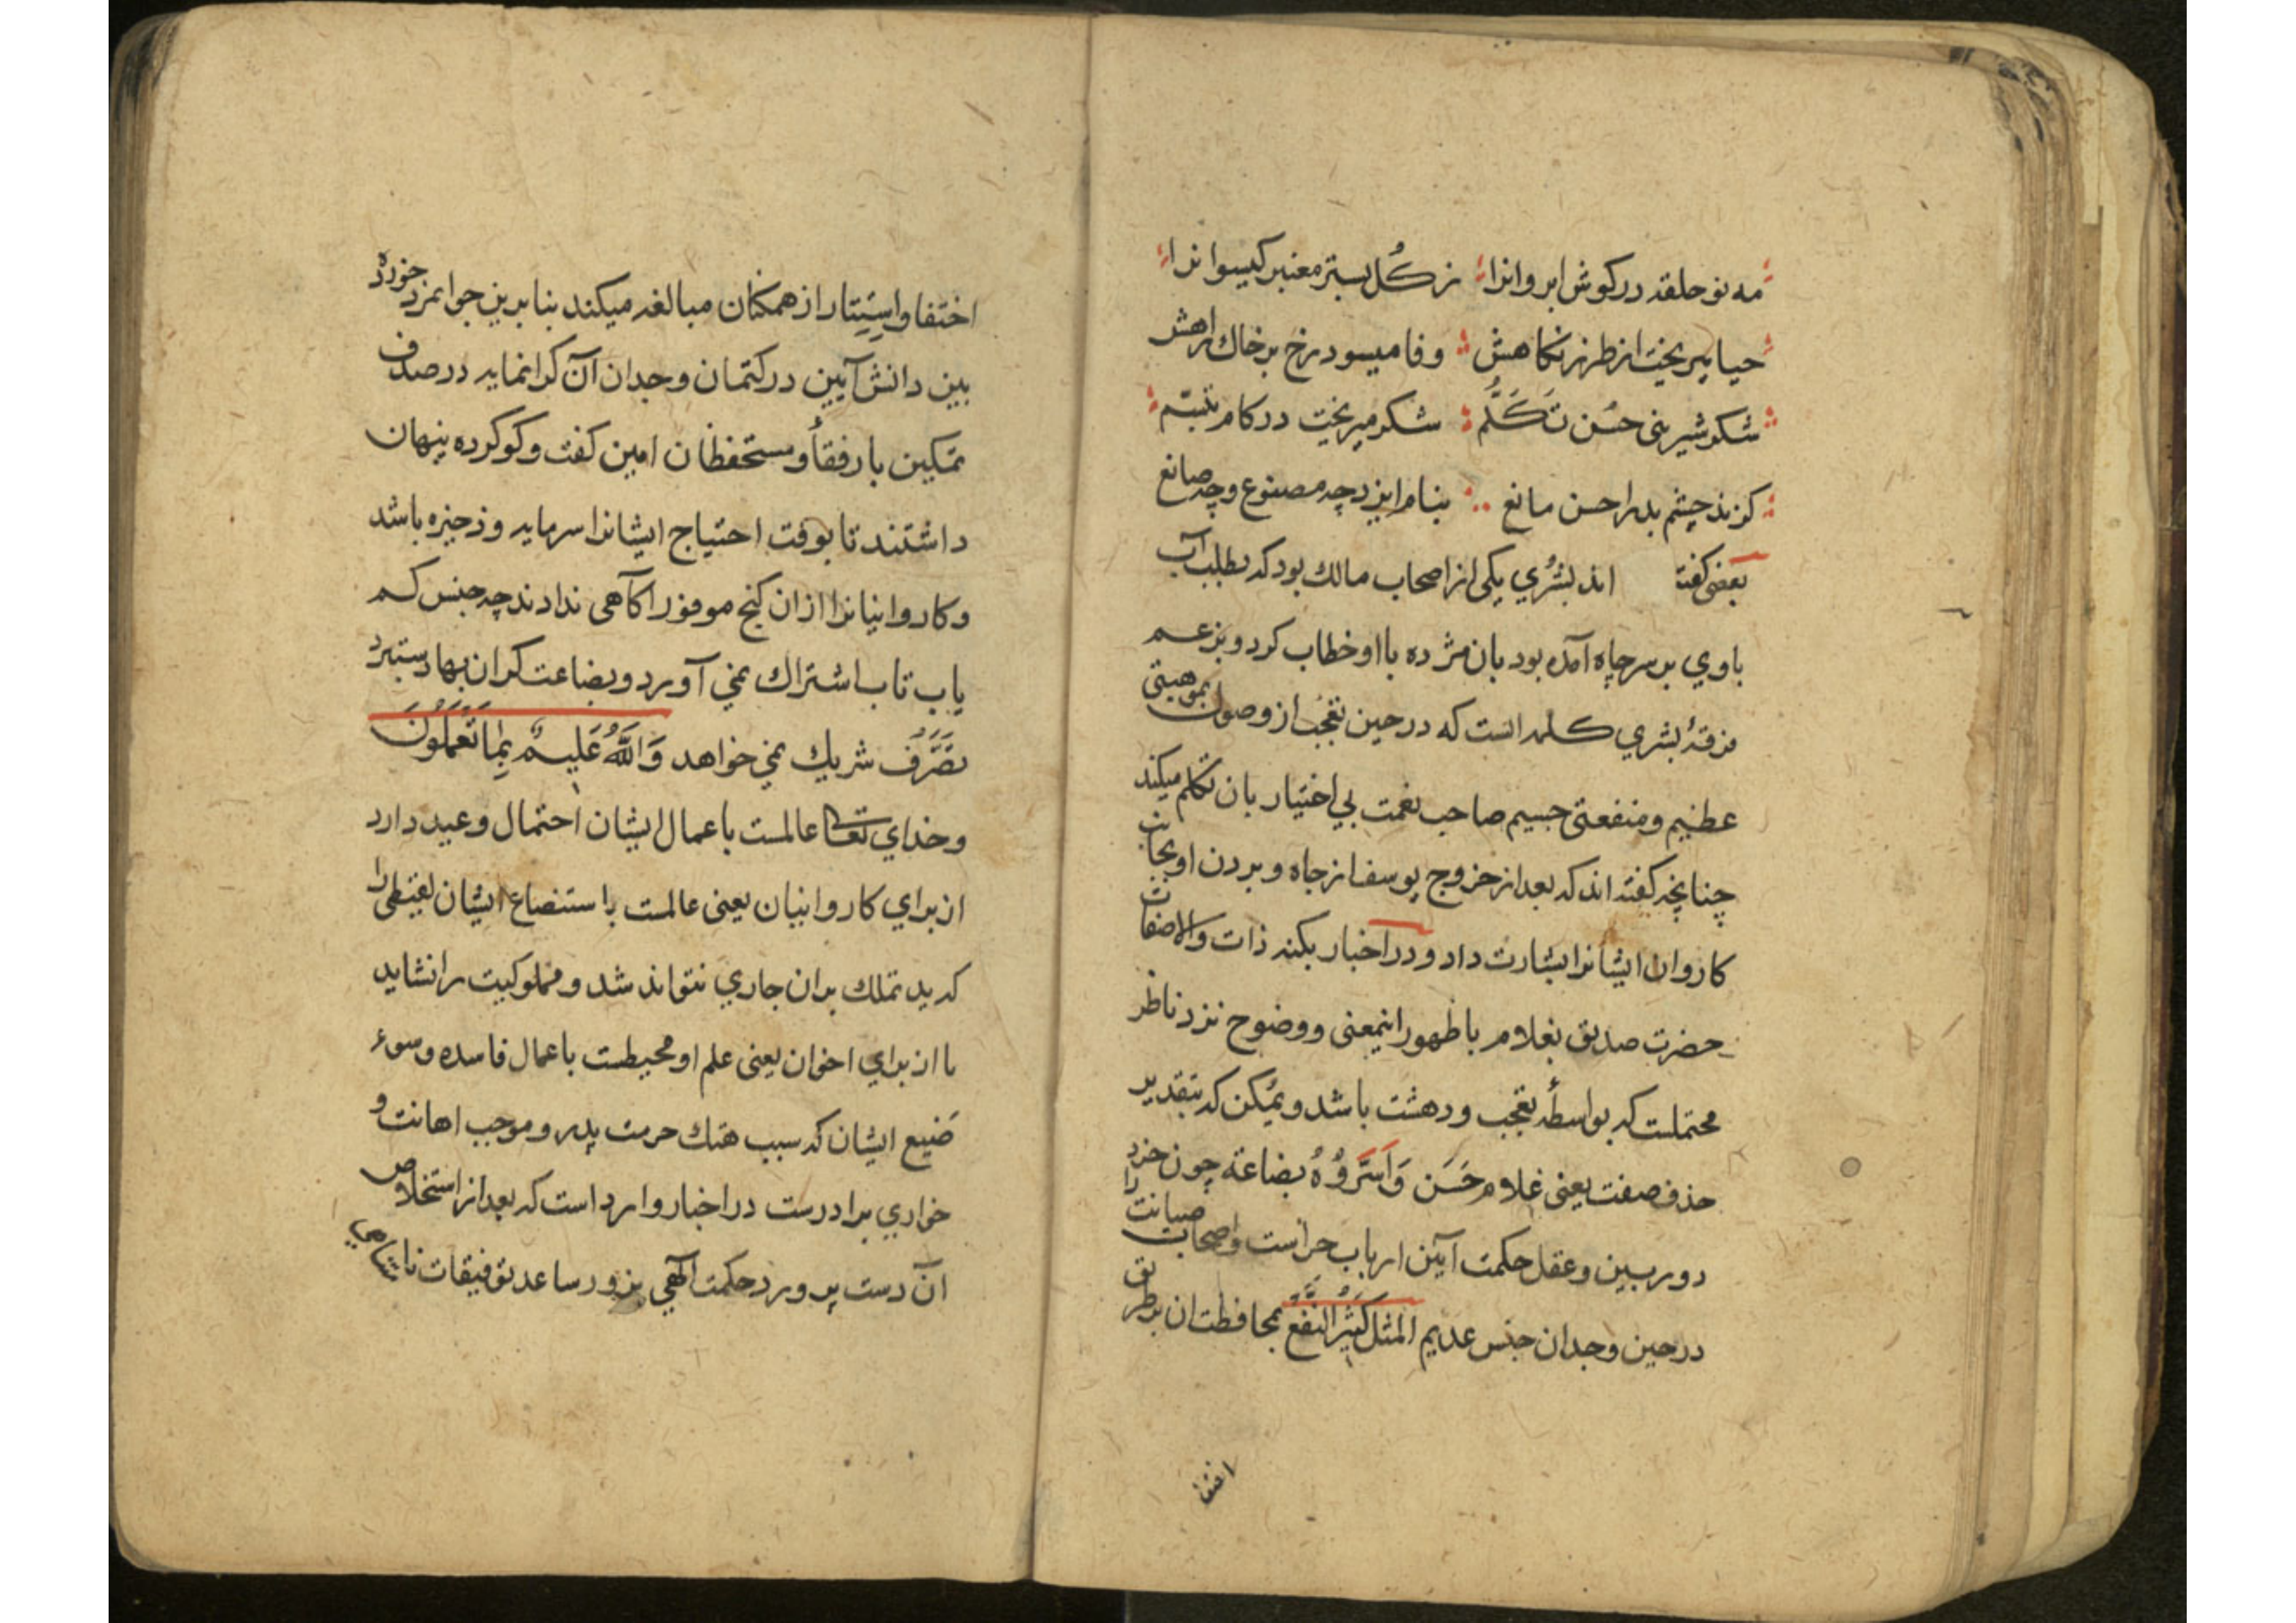 مه نو حلقه در کوش ابروانرا ز کُل بستر معنبر کیسوانرا
حیا میریخت از طرز نکاهش وفا میسود رخ بر خاک راهش
شکر شیرینی حُسن تَکَلُّم شکر میریخت در کام تبسّم
کزند چشم بد را حسن مانع بنام ایزد چه مصنوع وچه صانع
بعضی کفته اند بُشری یکی از اصحاب مالك بود که بطلب آب
باوی بر سر چاه آمده بود بان مژده با او خطاب کرد و بزعم
فرقهٔ بشری کلمه است که در حین تعجب از وصول بموهبتی
عظیم ومنفعتی جسیم صاحب نعمت بی اختیار بان تکلم میکند
چنانچه کفته اند که بعد از خروج یوسف از چاه و بردن او بجانب
کاروان ایشانرا بشارت داد و در اخبار بکنه ذات والاصفات
حضرت صدیق بغلام با ظهور اینمعنی و وضوح نزد ناظر
محتملست که بواسطهٔ تعجب و دهشت باشد و یمکن که بتقدیر
حذف صفت یعنی غلام حَسَن وَاَسَرُّوْهُ بضاعة چون خرد
دوربین وعقل حکمت آیین ارباب حراست واصحاب صیانت را
در حین وجدان جنس عدیم المثل کَثِیْرُ النَّفْعِ بمحافظت ان بطریق
اختفا
اختفا واِسْتِتار از همکنان مبالغه میکند بنا برین جوانمرد خورده
بین دانش آیین در کتمان وجدان آن کرانمایه در صدف
تمکین با رفقأ و مستحفظان امین کفت وکو کرده پنهان
داشتند تا بوقت احتیاج ایشانرا سرمایه و ذخیره باشد
وکاروانیانرا ازان کنج موفور آکاهی ندادند چه جنس کم
یاب تاب اشتراك نمی آورد و بضاعت کران بها دستبرد
تَصَرُّف شریك نمی خواهد وَاللّٰهُ عَلِیمٌ بِمَا تَعْمَلُوْنَ
وخدای تعالی عالمست باعمال ایشان احتمال وعید دارد
از برای کاروانیان یعنی عالمست با ستبضاع ایشان لقیطی را
که ید تملك بران جاری نتواند شد و مملوکیت را نشاید
یا از برای اخوان یعنی علم او محیطست باعمال فاسده وسوء
صَنیع ایشان که سبب هتك حرمت پدر و موجب اهانت و
خواری برادرست در اخبار وارد است که بعد از استخلاص
آن دست پرورد حکمت الٓهی بزور ساعد توفیقات نامتناهی